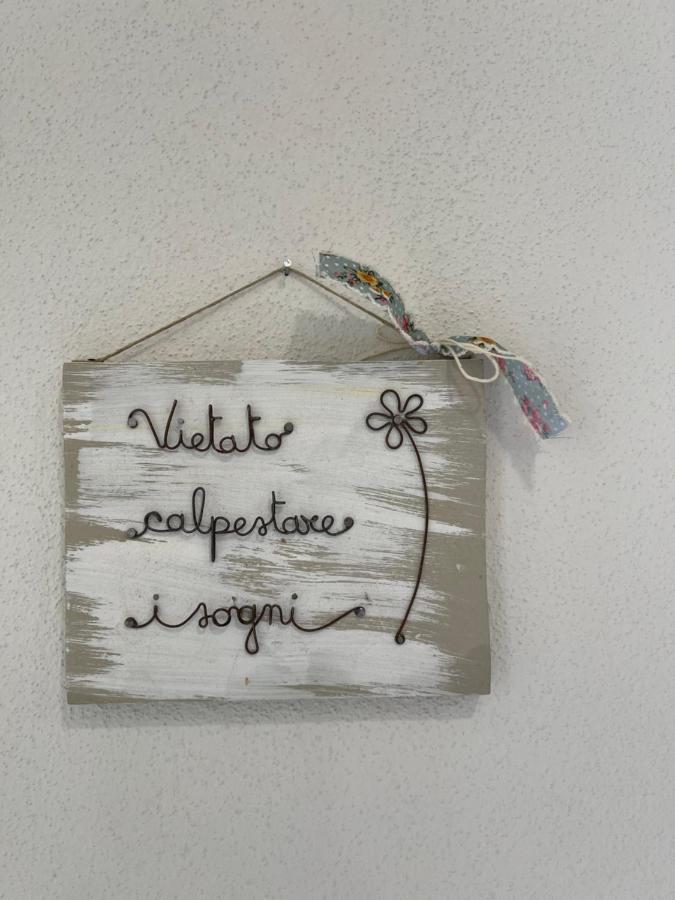 Vietato
calpestare
i sogni